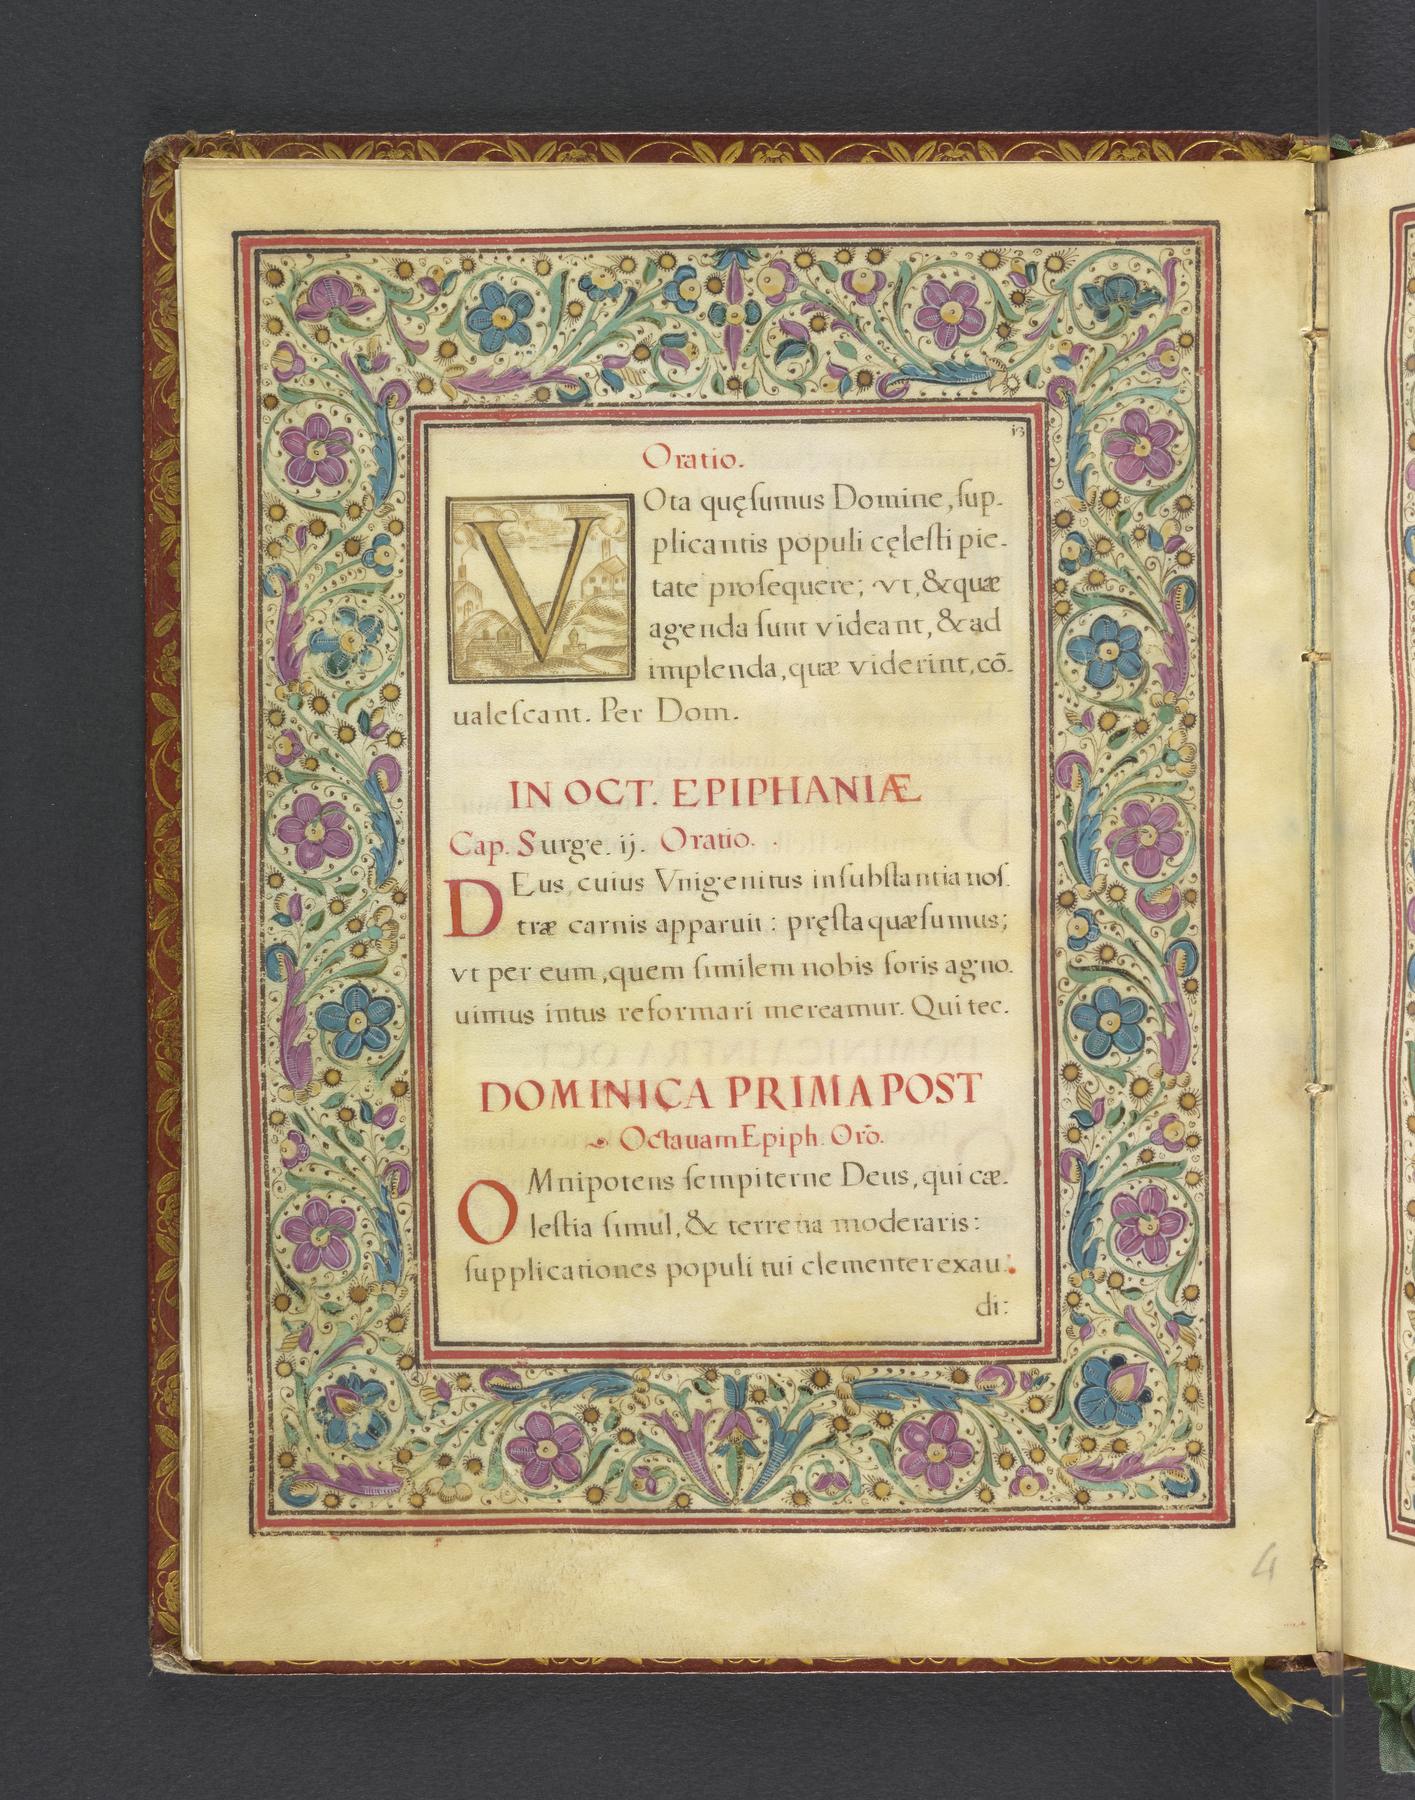 13
Oratio.
VOta quęſumus Domine, ſup-
plicantis populi cęleſti pie-
tate proſequere; vt, & quæ
agenda ſunt videant, & ad
implenda, quæ viderint, cō-
ualeſcant. Per Dom.
IN OCT. EPIPHANIÆ
Cap. Surge. ij. Oratio.
DEus, cuius Vnigenitus in ſubſtantia noſ-
træ carnis apparuit: pręſta quæſumus;
vt per eum, quem ſimilem nobis foris agno-
uimus intus reformari mereamur. Qui tec.
DOMINICA PRIMA POST
Octauam Epiph. Orō.
OMnipotens ſempiterne Deus, qui cæ-
leſtia ſimul, & terrena moderaris:
ſupplicationes populi tui clementer exau-
di:
4